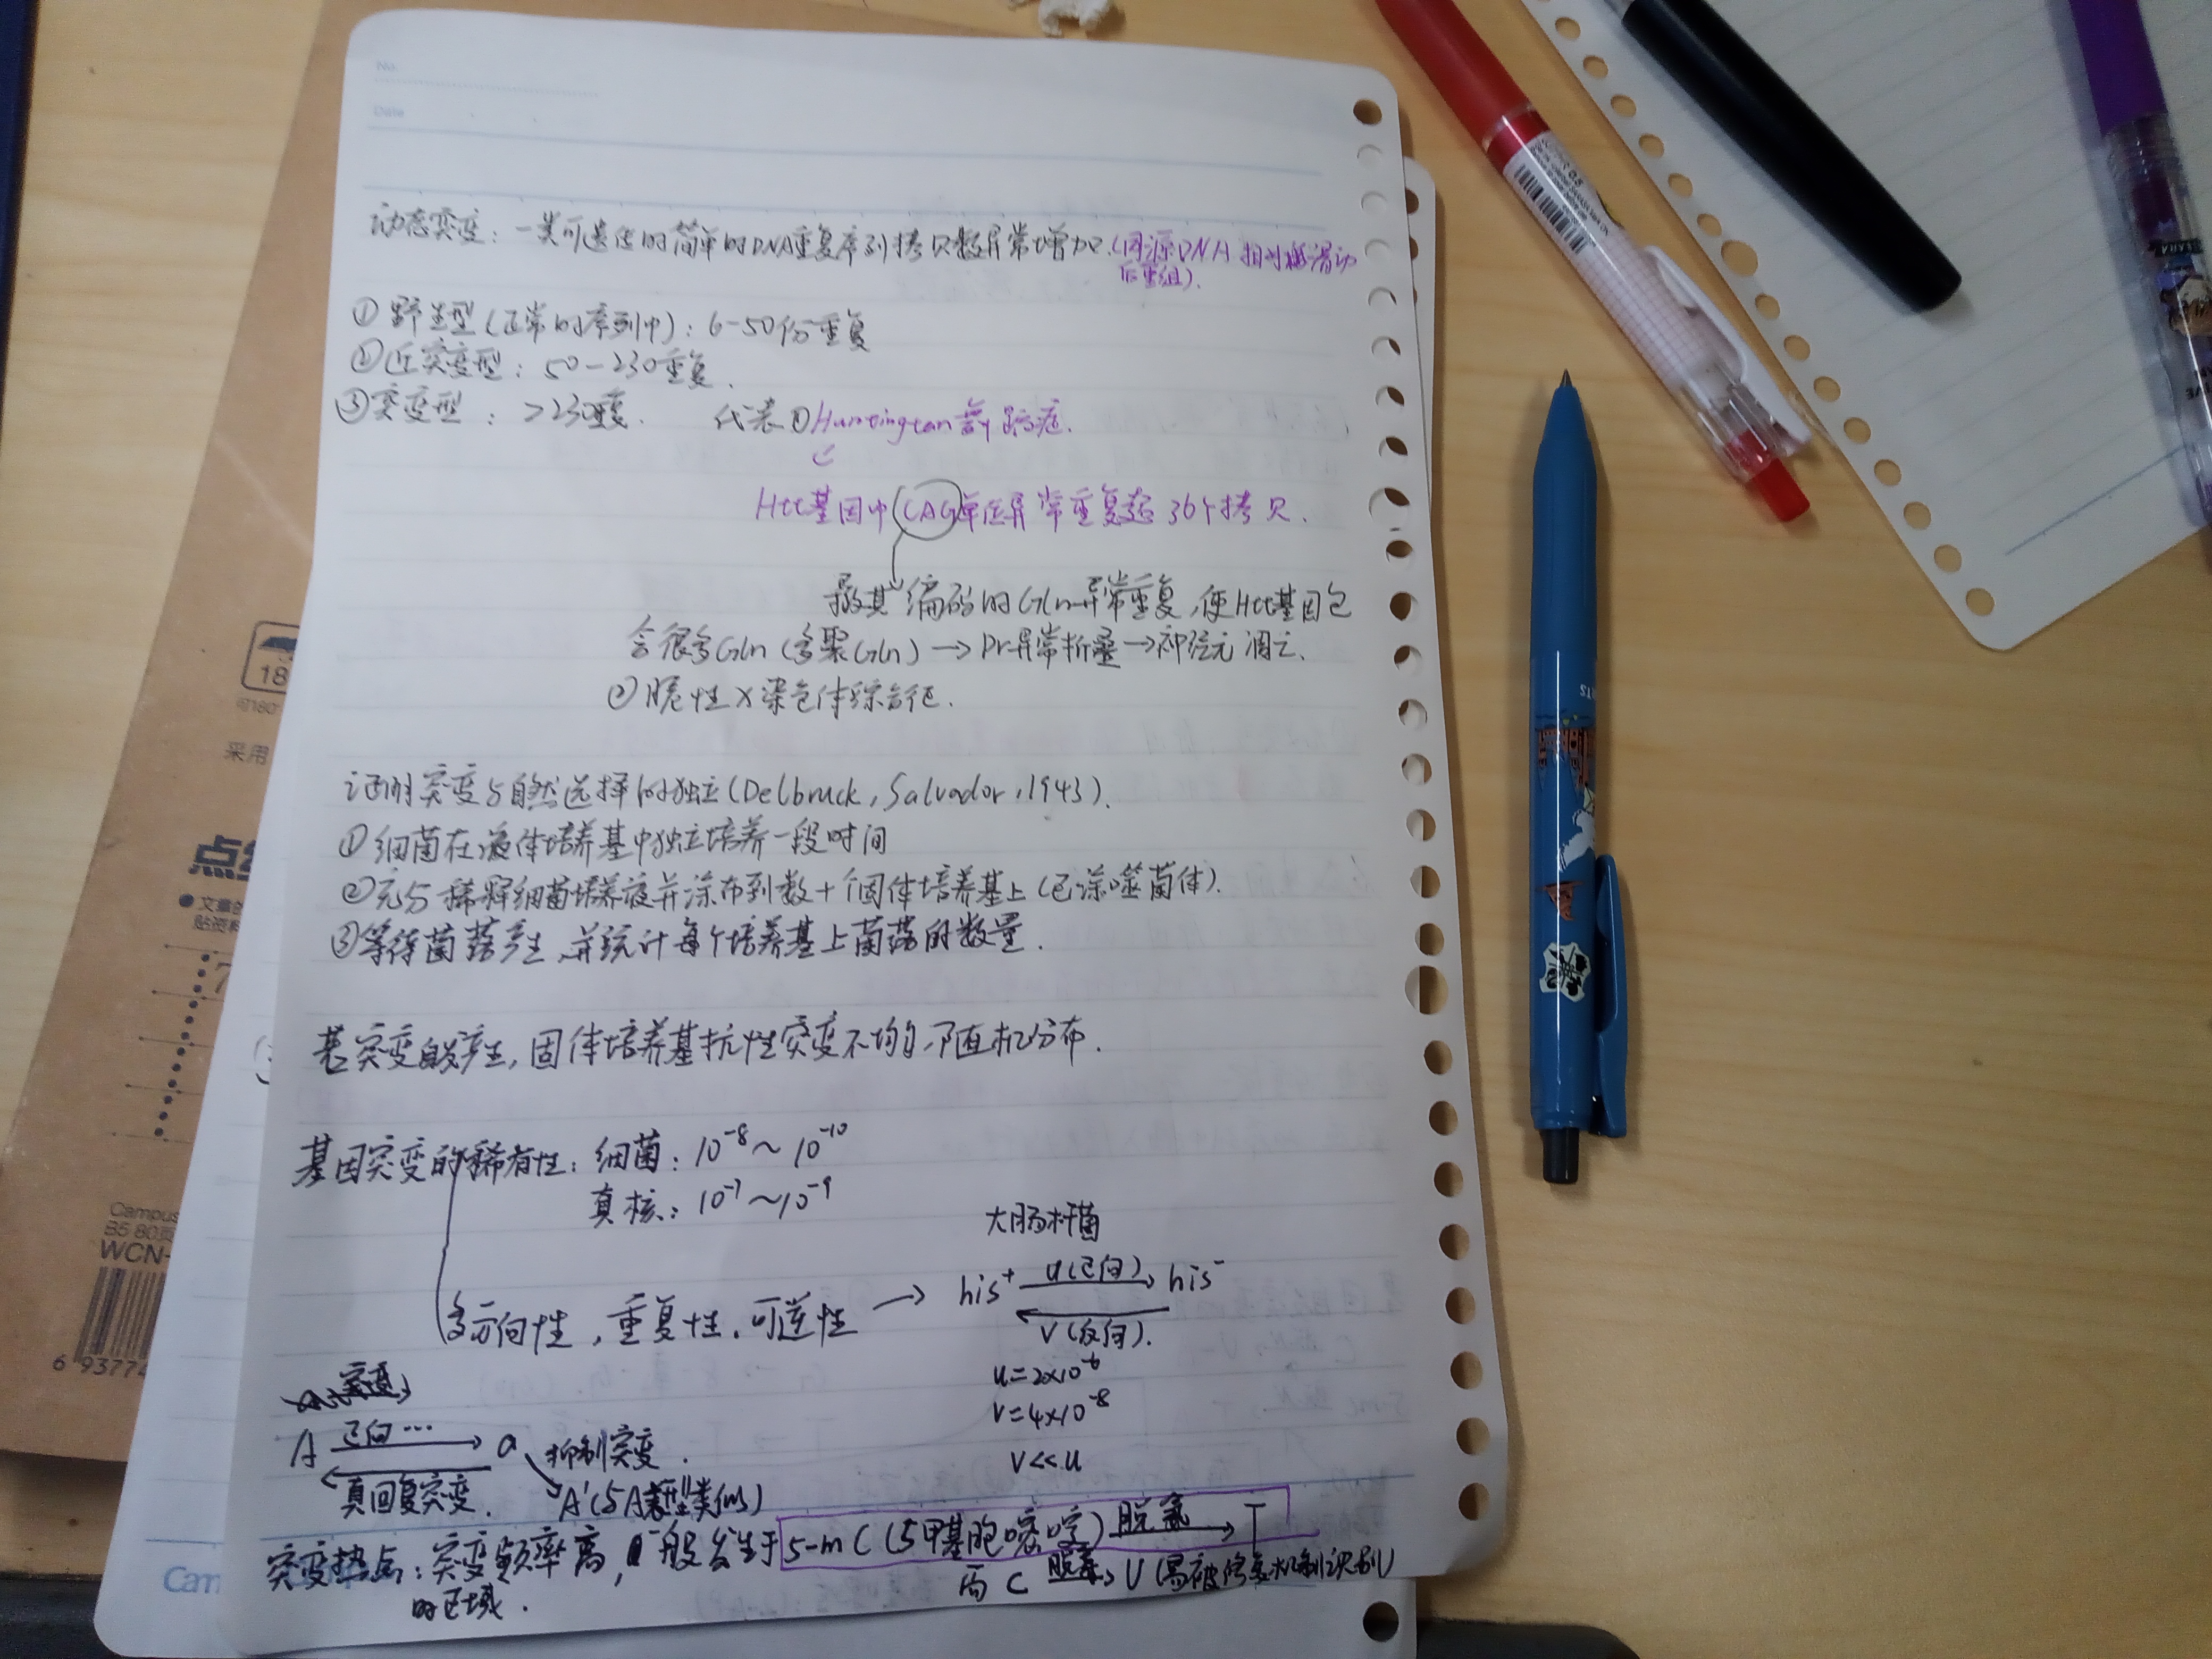 No.
Date
动态突变：一类可遗传的简单的DNA重复序列拷贝数异常增加.(同源DNA相对链滑动
后重组).
①野生型(正常的序列中)：6-50份重复
②近突变型：50-230重复.
③突变型：>230重复. 代表①Huntington舞蹈症.
Htt基因中CAG单位异常重复超36个拷贝.
导致其编码的Gln异常重复,使Htt基因包
含很多Gln(多聚Gln)→Pr异常折叠→神经元凋亡.
②脆性X染色体综合征.
证明突变与自然选择的独立(Delbruck,Salvador,1943).
①细菌在液体培养基中独立培养一段时间
②充分稀释细菌培养液并涂布到数十个固体培养基上(已涂噬菌体).
③等待菌落产生,并统计每个培养基上菌落的数量.
若突变自发产生,固体培养基抗性突变不均匀,随机分布.
基因突变的稀有性：细菌：10⁻⁸~10⁻¹⁰
真核：10⁻⁷~10⁻⁹
大肠杆菌
多方向性,重复性,可逆性→his⁺ u(正向) his⁻
v(反向).
u=2×10⁻⁶
v=4×10⁻⁸
v<<u
突变
A 正向… a 抑制突变.
真回复突变. A'(与A表型类似)
突变热点：突变频率高,一般发生于5-mC(5甲基胞嘧啶)脱氨→T
的区域. 而C脱氨→U(易被修复机制识别)
18
采用
点线
文章的
贴资料
7
Campus
B5 80页
WCN-
6 93774
Cam